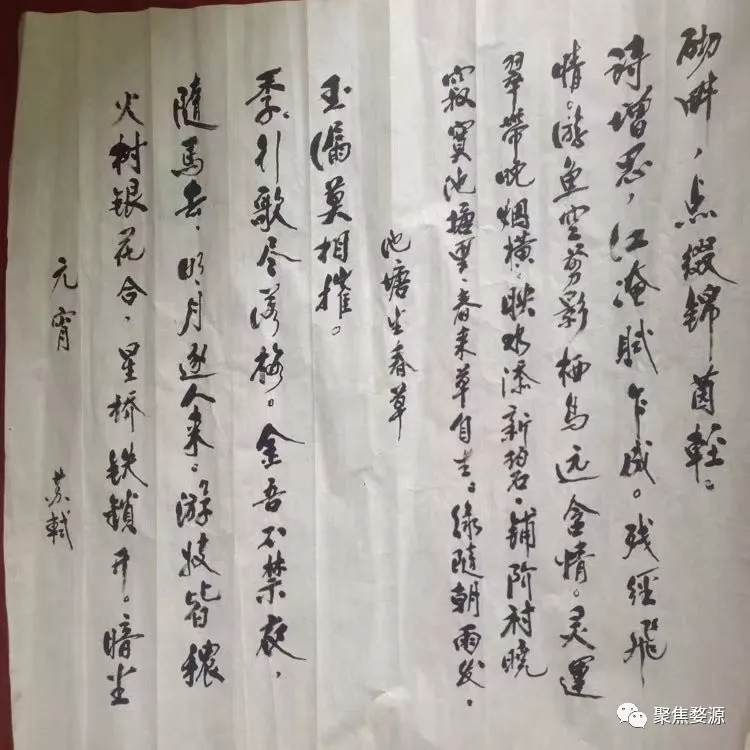 元宵 苏轼
火树银花合，星桥铁锁开。暗尘
随马去，明月逐人来。游妓皆秾
季，行歌尽落梅。金吾不禁夜，
玉漏莫相摧。
池塘生春草
寂寞池塘里，春来草自生。绿随朝雨发，
翠带晚烟横。映水添新碧，铺阶衬晓
情。游鱼空弄影，栖鸟远含情。灵運
诗增思，江淹賦乍成。残经飛
砌畔，点缀锦茵軽。
聚焦婺源